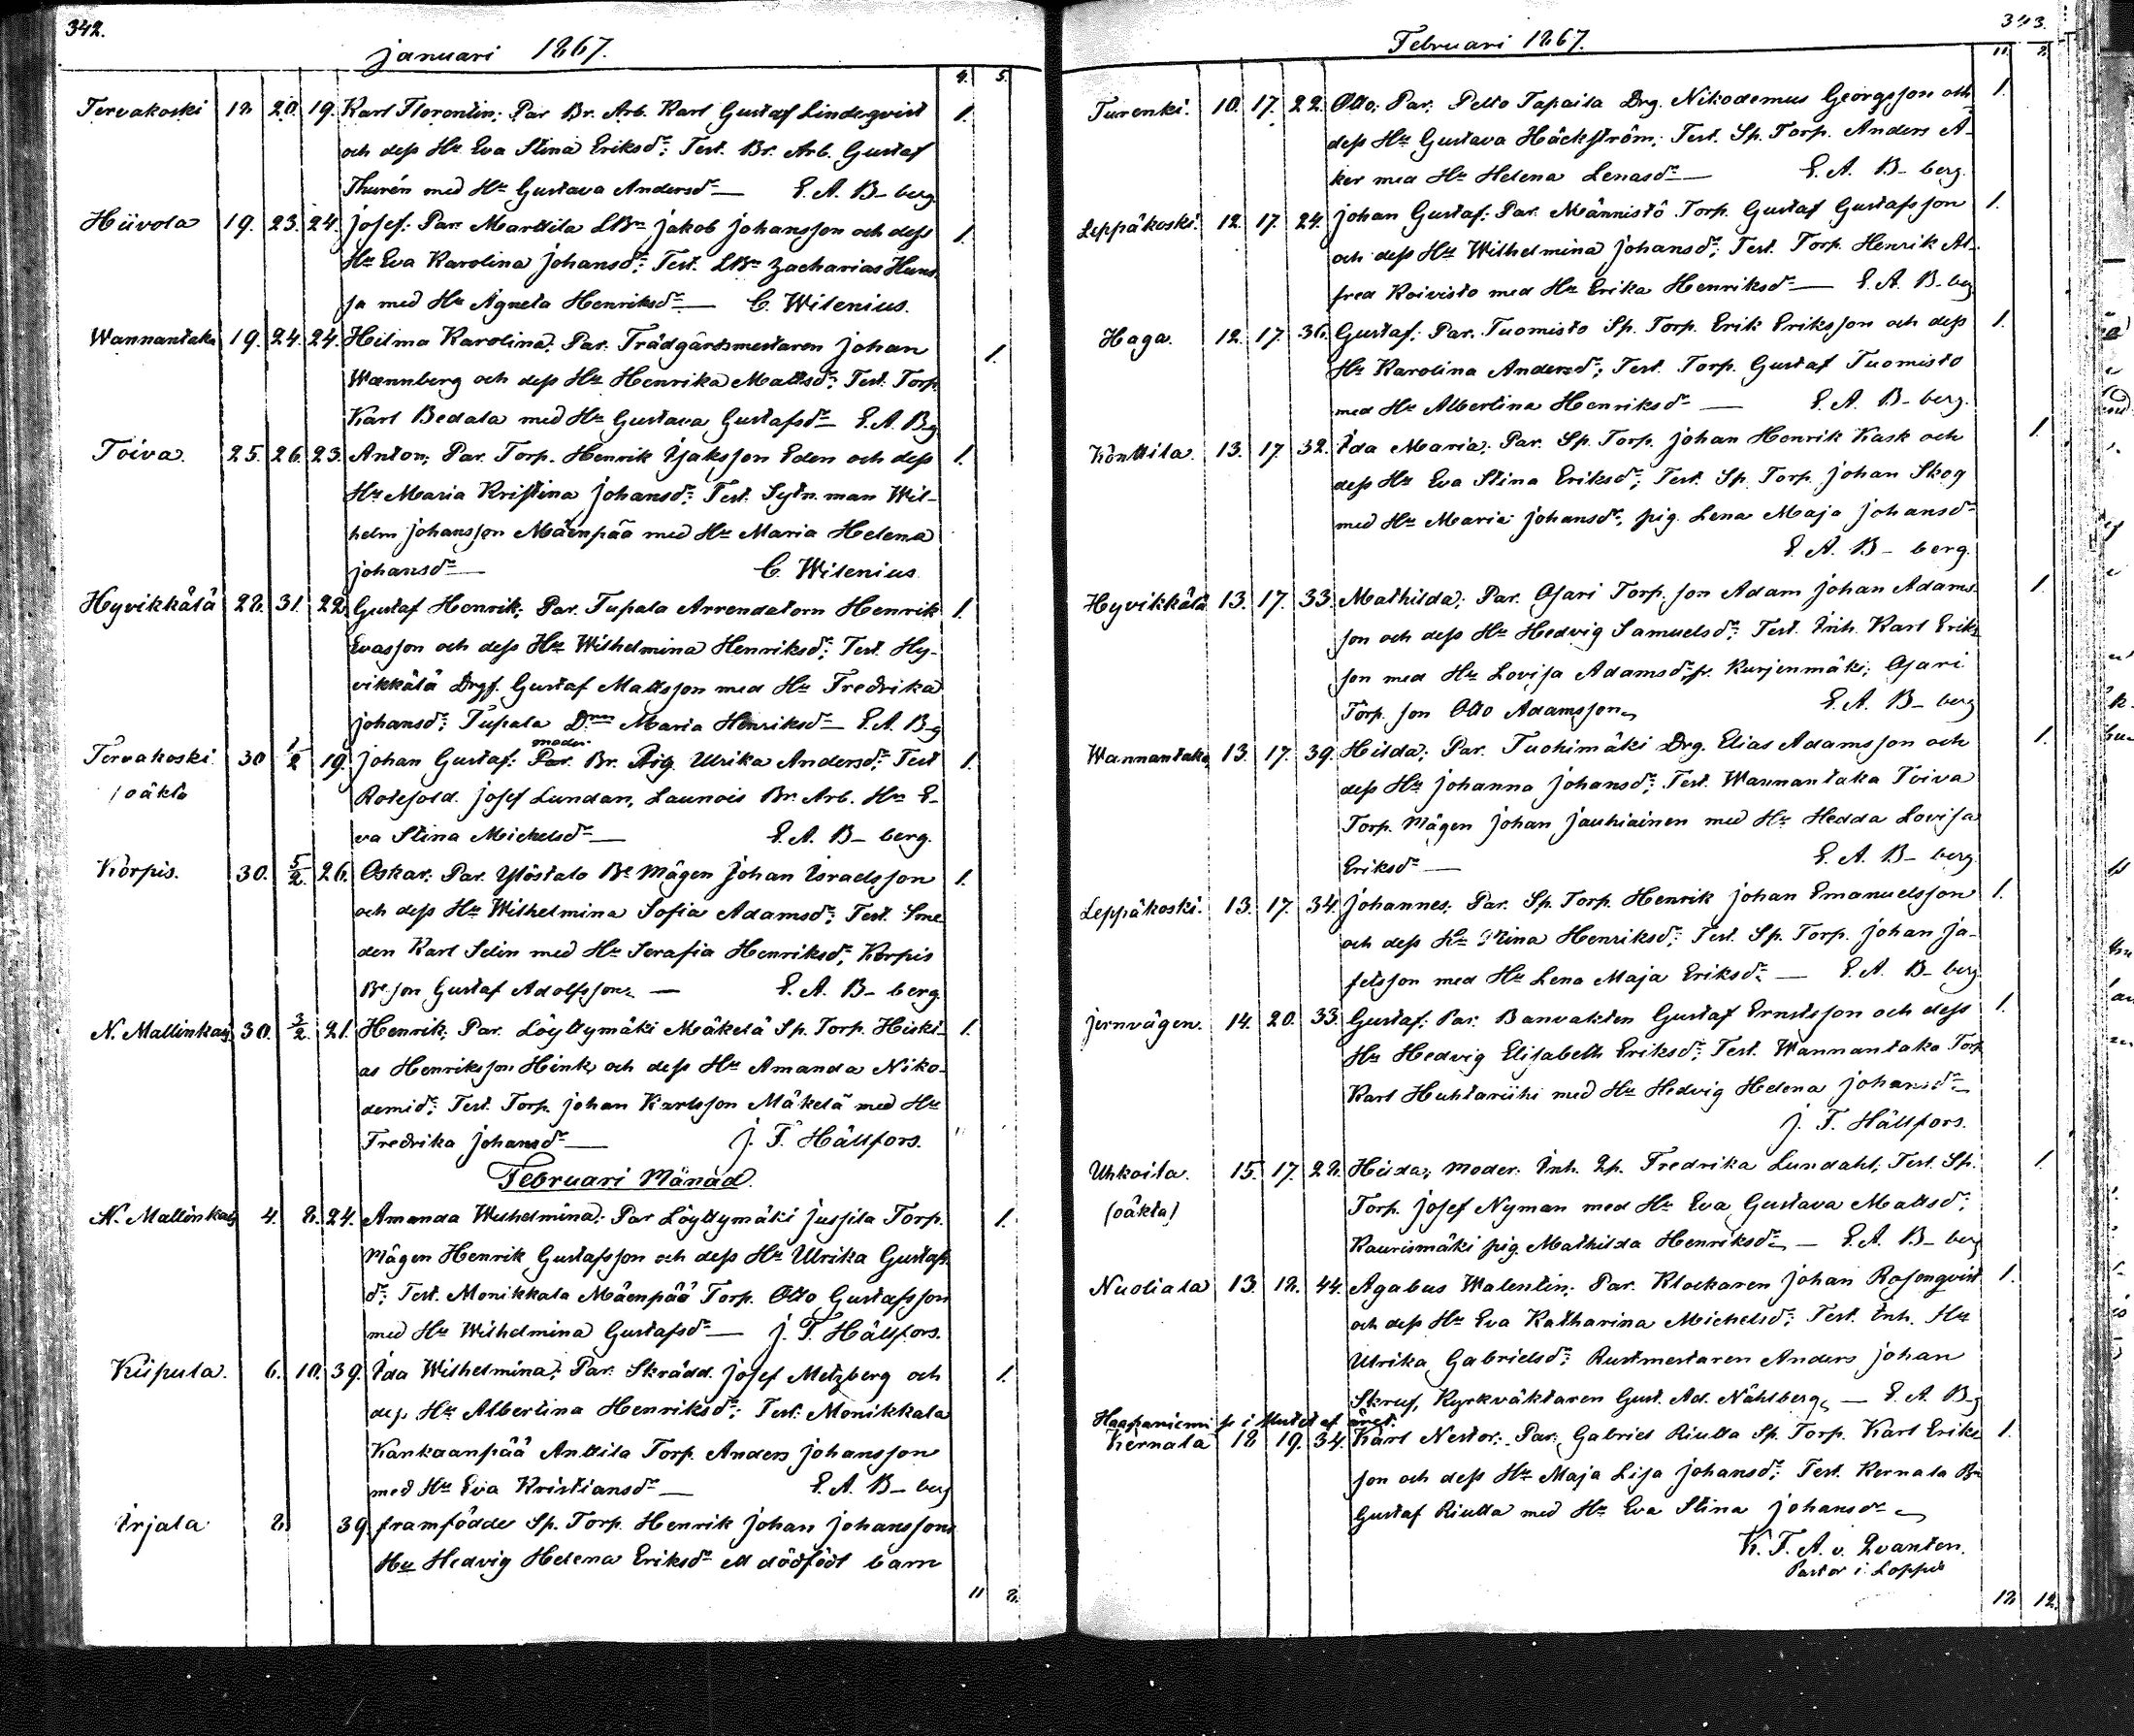 342.
Januari 1867.
4. 5.
Tervakoski 18 20. 19. Karl Florentin; Par Br. Arb. Karl Gustaf Lindeqvist 1.
och dess Hu Eva Stina Eriksdr; Test. Br. Arb. Gustaf
Thurén med Hu Gustava Andersdr— E. A. B-berg.
Hiivola 19. 23. 24. Josef; Par. Marttila LBn Jakob Johansson och dess 1.
Hu Eva Karolina Johansdr; Test. LBn Zacharias Hans
sa med Hu Agneta Henriksdr— C. Wilenius.
Wannantaka 19. 24. 24. Hilma Karolina; Par. Trädgårdsmestaren Johan 1.
Wannberg och dess Hu Henrika Mattsdr; Test. Torp.
Karl Bedala med Hu Gustava Gustafsdr— E. A. Bg
Toiva. 25. 26. 23. Anton; Par. Torp. Henrik Isaksson Eden och dess 1.
Hu Maria Kristina Johansdr; Test. Sytn. man Wil-
helm Johansson Mäenpää med Hu Maria Helena
Johansdr— C. Wilenius
Hyvikkälä 28. 31. 22. Gustaf Henrik; Par. Tupala Arrendatorn Henrik 1.
Evasson och dess Hu Wilhelmina Henriksdr; Test. Hy-
vikkälä Drgs. Gustaf Mattsson med Hu Fredrika
Johansdr; Tupala Maria Henriksdr— E. A. B-g
moder
Tervakoski 30 1/2 19. Johan Gustaf; Par. Br. Pig. Ulrika Andersdr; Test 1.
/oäkta Rotesold. Josef Lundan, Launois Br. Arb. Hu E-
va Stina Michelsdr— E. A. B-berg.
Korpis. 30. 5/2. 26. Oskar; Par. Ylöstalo Be Mågen Johan Israelsson 1.
och dess Hu Wilhelmina Sofia Adamsdr; Test. Sme
den Karl Selin med Hu Serafia Henriksdr, Korpis
Be son Gustaf Adolfsson — E. A. B-berg.
N. Mallinkais 30. 3/2. 21. Henrik; Par. Löyttymäki Mäkelä Sp. Torp. Hiski- 1.
as Henriksson Hink och dess Hu Amanda Niko-
demidr; Test. Torp. Johan Karlsson Mäkelä med Hu
Fredrika Johansdr— J. F. Hällfors.
Februari Månad.
N. Mallinkais 4. 8. 24. Amanda Wilhelmina; Par Löyttymäki Jussila Torp. 1.
Mågen Henrik Gustafsson och dess Hu Ulrika Gustafs
dr; Test. Monikkala Mäenpää Torp. Otto Gustafsson
med Hu Wilhelmina Gustafsdr— J. F. Hällfors.
Kiipula. 6. 10. 39. Ida Wilhelmina; Par. Skrädd. Josef Metzberg och 1.
dess Hu Albertina Henriksdr; Test: Monikkala
Kankaanpää Anttila Torp. Anders Johansson
med Hu Eva Kristiansdr— E. A. B-berg
Irjala 8. 39. framfödde Sp. Torp. Henrik Johan Johanssons
Hu Hedvig Helena Eriksdr ett dödfödt barn
11 8.
343.
Februari 1867.
11. 8.
Turenki. 10. 17. 22. Otto; Par; Pelto Tapaila Drg. Nikodemus Georgsson och 1.
dess Hu Gustava Häckström; Test. Sp. Torp. Anders A-
ker med Hu Helena Lenasdr— E. A. B-berg.
Leppäkoski. 12. 17. 24. Johan Gustaf; Par. Männistö Torp. Gustaf Gustafsson 1.
och dess Hu Wilhelmina Johansdr; Test. Torp. Henrik Al-
fred Koivisto med Hu Erika Henriksdr— E. A. B-berg
Haga. 12. 17. 36. Gustaf; Par. Tuomisto Sp. Torp. Erik Eriksson och dess 1.
Hu Karolina Andersdr; Test. Torp. Gustaf Tuomisto
med Hu Albertina Henriksdr— E. A. B-berg.
Konttila. 13. 17. 32. Ida Maria; Par. Sp. Torp. Johan Henrik Kask och 1.
dess Hu Eva Stina Eriksdr; Test. Sp. Torp. Johan Skog
med Hu Maria Johansdr, pig. Lena Maja Johansdr
E. A. B-berg.
Hyvikkälä 13. 17. 33. Mathilda; Par. Ojari Torp. son Adam Johan Adams- 1.
son och dess Hu Hedvig Samuelsdr; Test. Inh. Karl Eriks
son med Hu Lovisa Adamsdr fr. Kurjenmäki; Ojari
Torp. son Otto Adamsson E. A. B-berg
Wannantaka 13. 17. 39. Hilda; Par. Tuohimäki Drg. Elias Adamsson och 1.
dess Hu Johanna Johansdr; Test. Wannantaka Toiva
Torp. Mågen Johan Jauhiainen med Hu Hedda Lovisa
Eriksdr— E. A. B-berg.
Leppäkoski. 13. 17. 34. Johannes; Par. Sp. Torp. Henrik Johan Emanuelsson 1.
och dess Hu Stina Henriksdr; Test. Sp. Torp. Johan Ja-
fetsson med Hu Lena Maja Eriksdr— E. A. B-berg.
Jernvägen. 14. 20. 33. Gustaf; Par. Banvakten Gustaf Ernstsson och dess 1.
Hu Hedvig Elisabeth Eriksdr; Test. Wannantaka Torp
Karl Huhtariihi med Hu Hedvig Helena Johansdr—
J. F. Hällfors.
Uhkoila. 15. 17. 28. Hilda; moder. Inh. Qp. Fredrika Lundahl; Test. Sp. 1.
(oäkta) Torp. Josef Nyman med Hu Eva Gustava Mattsdr;
Kaurismäki pig. Mathilda Henriksdr— E. A. B-berg
Nuoliala 13. 18. 44. Agabus Walentin; Par. Klockaren Johan Rosenqvist 1.
och dess Hu Eva Katharina Michelsdr; Test. Inh. Hu
Ulrika Gabrielsdr; Rustmestaren Anders Johan
Skruf, Kyrkväktaren Gust. Ad. Nählberg, — E. A. B-g
Haapaniemi fr i slutet af året.
Kernala 18 19. 34. Karl Nestor; Par; Gabriel Riutta Sp. Torp. Karl Eriks 1.
son och dess Hu Maja Lisa Johansdr; Test. Kernala Bn
Gustaf Riutta med Hu Eva Stina Johansdr
K. F. A. v. Qvanten.
Pastor i Loppis
18 12.